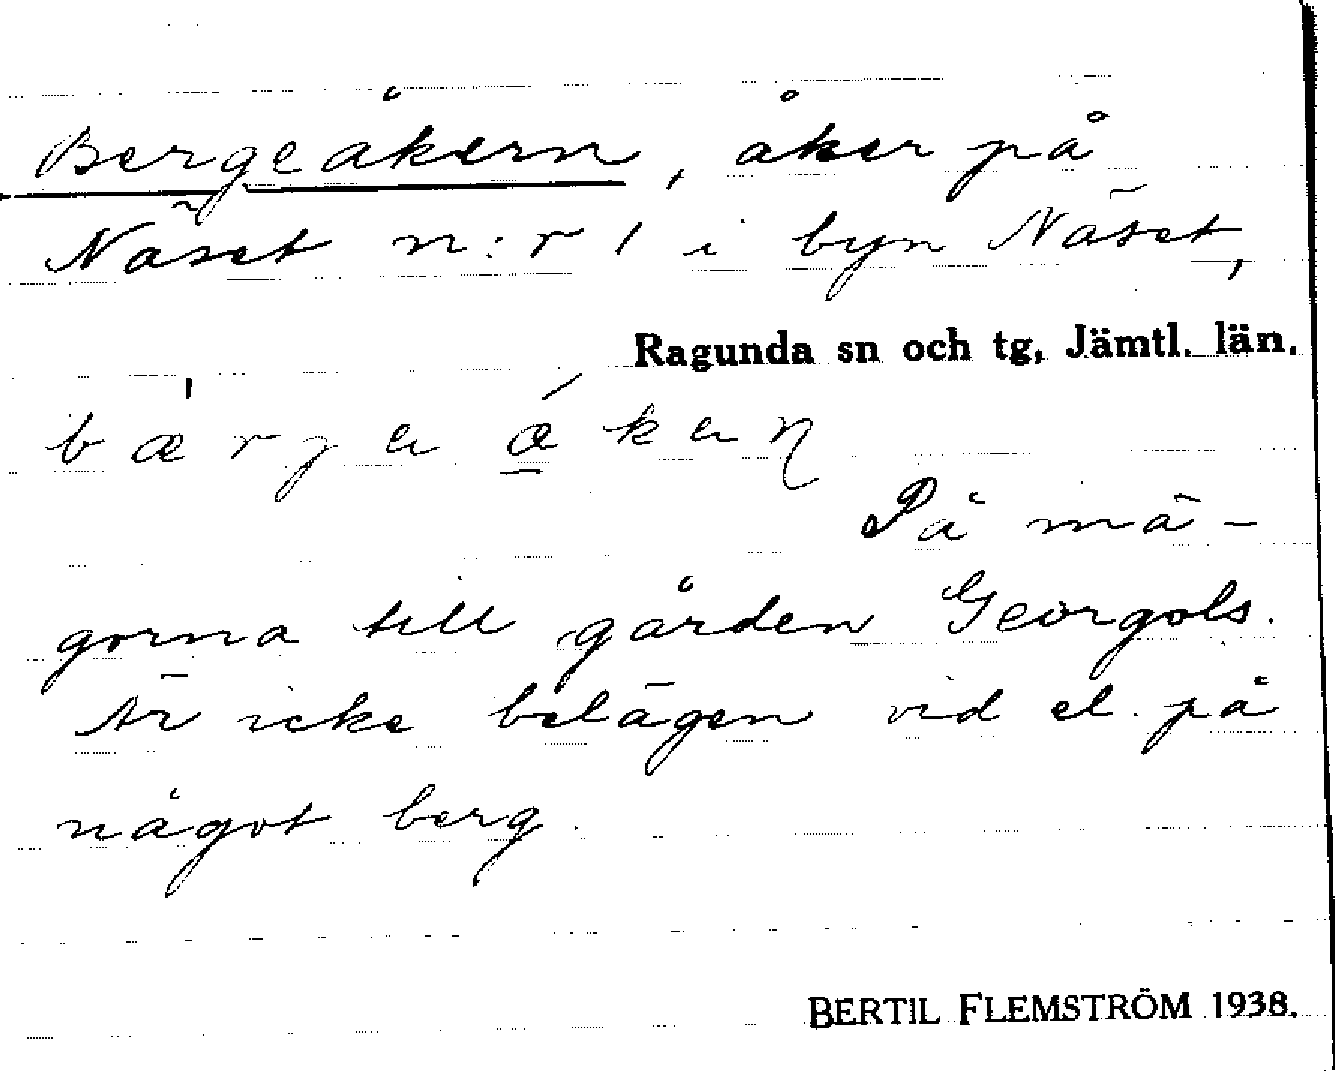 Bergeåkern, åker på
Näset n:r 1 i byn Näset,
Ragunda sn och tg, Jämtl. län.
På mä-
gorna till gården Georgols.
Är icke belägen vid el. på
något berg.
BERTIL FLEMSTRÖM 1938.